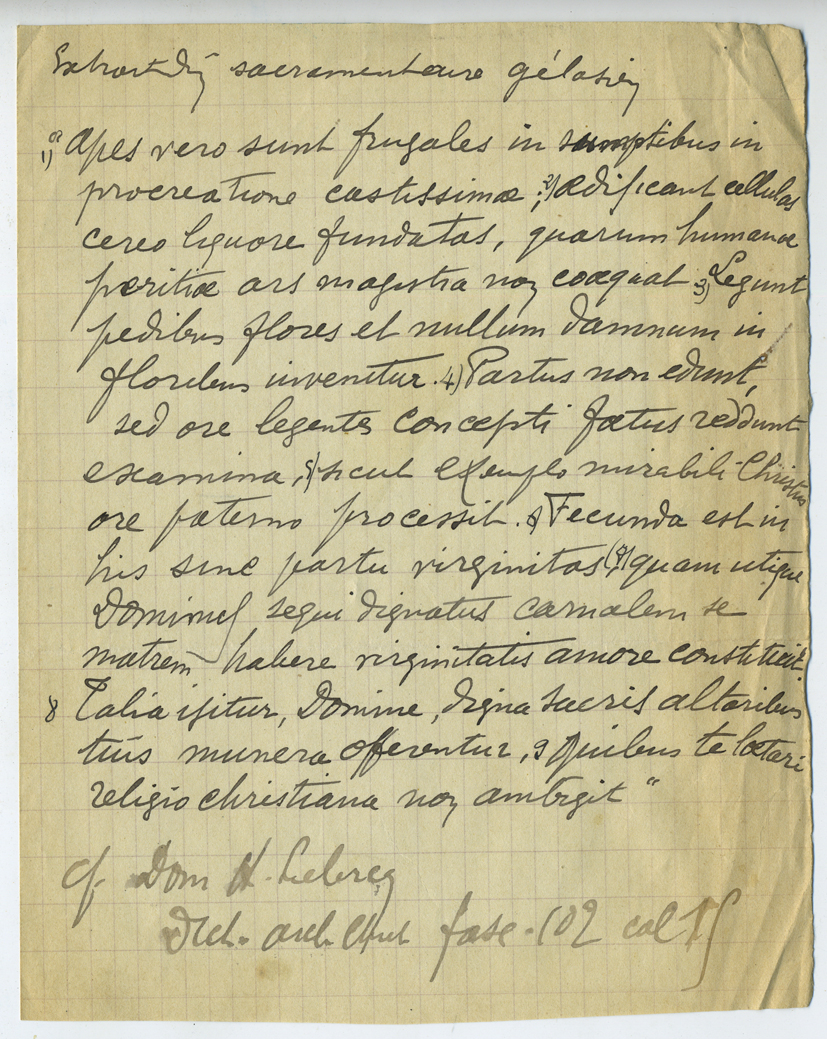 Extrait du sacramentaire gélasien
1) Apes vero sunt frugales in sumptibus in
procreatione castissimæ ; 2) Ædificant cellulas
cereo liquore fundatas, quarum humanæ
peritiæ ars magistra non coæquat 3) Legunt
pedibus flores et nullum damnum in
floribus invenitur. 4) Partus non edunt,
sed ore legentes concepti fœtus reddunt
examina, 5) sicut exemplo mirabili Christus
ore paterno processit. 6) Fecunda est in
his sine partu virginitas (7) quam utique
Dominus sequi dignatus carnalem se
matrem habere virginitatis amore constituit.
8 Talia igitur, Domine, digna sacris altaribus
tuis munera offerentur, 9 quibus te lætari
religio christiana non ambigit "
cf. Dom H. Leclercq
Dict. arch. Chret fasc. 102 col